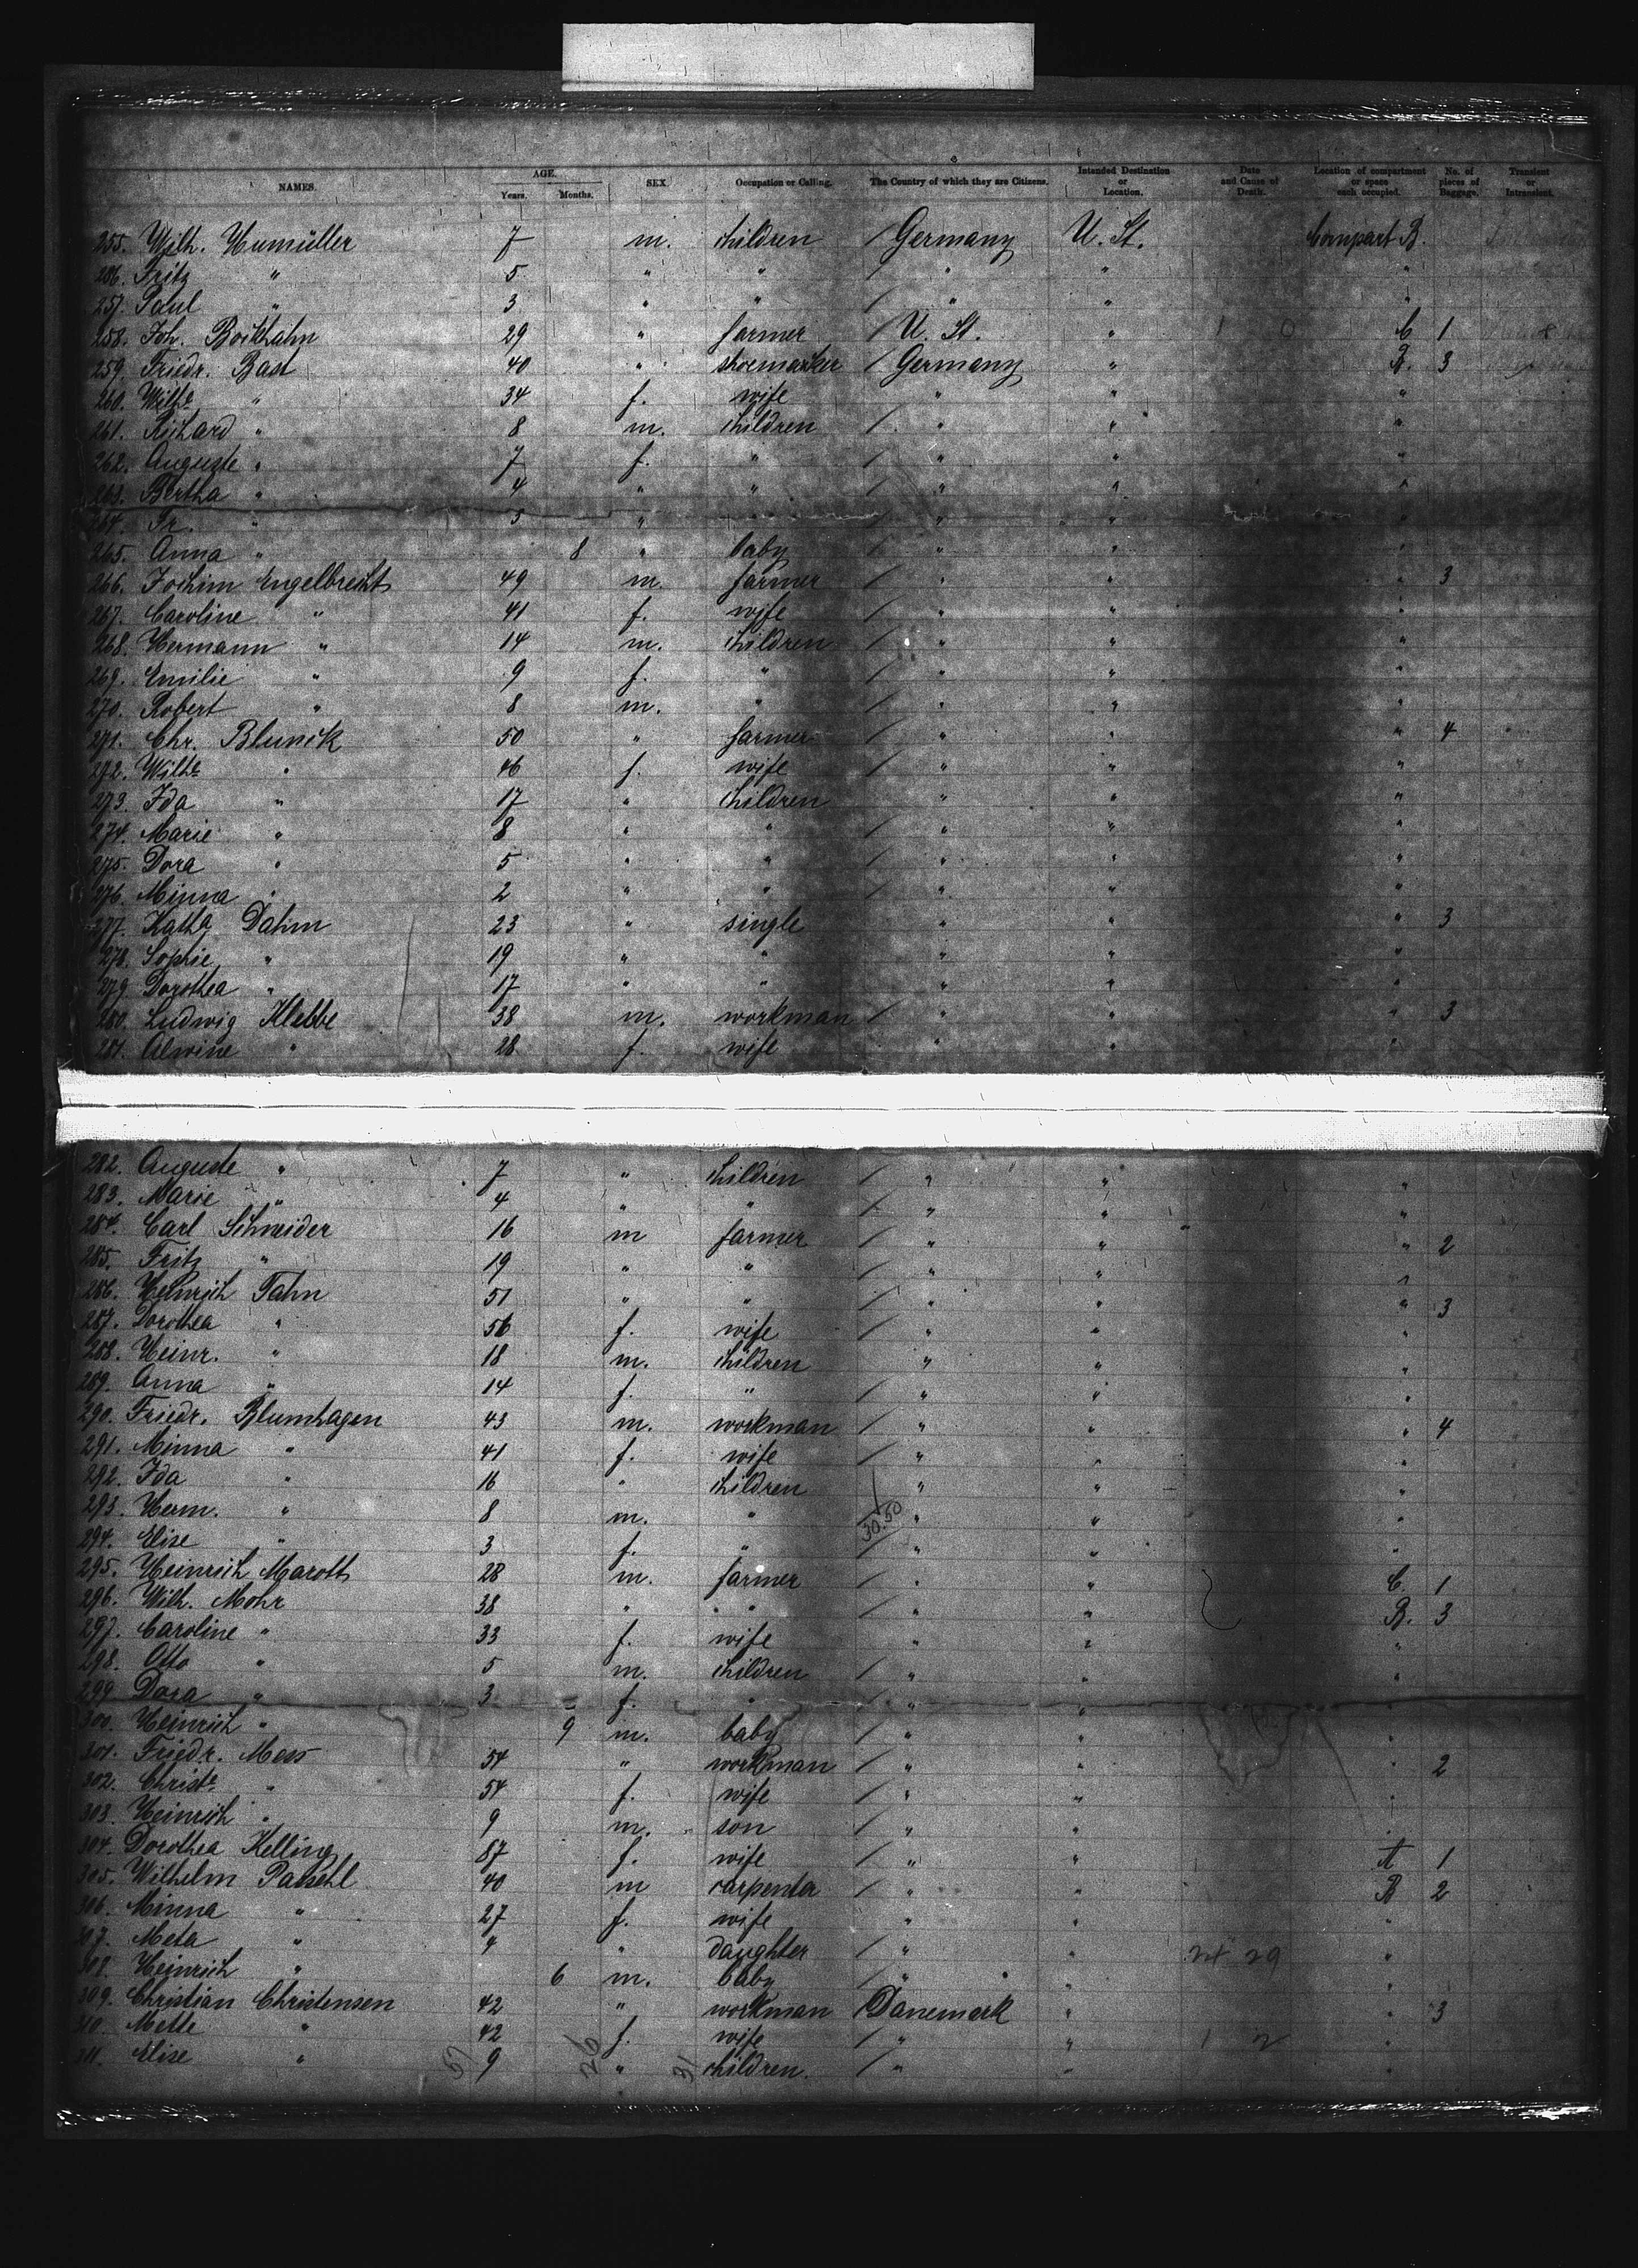 NAMES. AGE. Years. Months. SEX. Occupation or Calling. The Country of which they are Citizens. Intended Destination or Location. Date and Cause of Death. Location of compartment or space each occupied. No. of pieces of Baggage. Transient or Intransient.
255. Wilh. Humüller 7 m. children / Germany U. St. Compart B.
256. Fritz " 5 " " " " "
257. Paul " 3 " " / " " "
258. Joh. Boikhahn 29 " farmer / U. St. " 1 0 C 1
259. Friedr. Bast 40 " shoemarker / Germany " B. 3
260. Wilhe " 34 f. wife " " "
261. Richard " 8 m. children / " " "
262. Auguste " 7 f. " / " " "
263. Bertha " 4 " " / " " "
264. Fr. " 3 " / " " "
265. Anna " 8 " baby / " " "
266. Jochim Engelbrecht 49 m. farmer / " " " 3
267. Caroline " 41 f. wife / " " "
268. Hermann " 14 m. children / " " "
269. Emilie " 9 f. " / " " "
270. Robert " 8 m. " / " " "
271. Chr. Blunck 50 " farmer / " " " 4
272. Wilhe " 46 f. wife / " " "
273. Ida " 17 " children " " "
274. Marie " 8 " " / " " "
275. Dora " 5 " " / " " "
276. Minna " 2 " " / " " "
277. Kathe Dahm 23 " single " " " 3
278. Sophie " 19 " " " " "
279. Dorothea " 17 " " " " "
280. Ludwig Klebbe 38 m. workman / " " " 3
281. Alwine " 28 f. wife " " "
282. Auguste " 7 " children / " " "
283. Marie " 4 " " / " " "
284. Carl Schneider 16 m farmer / " " " 2
285. Fritz " 19 " " / " " "
286. Heinrich Tahn 51 " " / " " " 3
287. Dorothea " 56 f. wife / " " "
288. Heinr. " 18 m. children " " "
289. Anna " 14 f. " / " " "
290. Friedr. Blumhagen 43 m. workman / " " " 4
291. Minna " 41 f. wife / " " "
292. Ida " 16 " children / " " "
293. Herm. " 8 m. " / 30.50 " " "
294. Elise " 3 f. " / " " "
295. Heinrich Marott 28 m. farmer / " " C. 1
296. Wilh. Mohr 38 " " / " " B. 3
297. Caroline " 33 f. wife " " "
298. Otto " 5 m. children / " " "
299. Dora " 3 f. " / " " "
300. Heinrich " 9 m. baby / " " "
301. Friedr. Mess 54 " workman / " " " 2
302. Christe " 54 f. wife / " " "
303. Heinrich " 9 m. son / " " "
304. Dorothea Kelling 87 f. wife / " " A 1
305. Wilhelm Paesehl 40 m carpenter / " " B 2
306. Minna " 27 f. wife " " "
307. Meta " 4 " daughter / " " 24 29 "
308. Heinrich " 6 m. baby / " " "
309. Christian Christensen 42 " workman Danemark " " 3
310. Mette " 42 f. wife / " " 1 2 "
311. Elise " 9 " children. / " " "
57 26 31